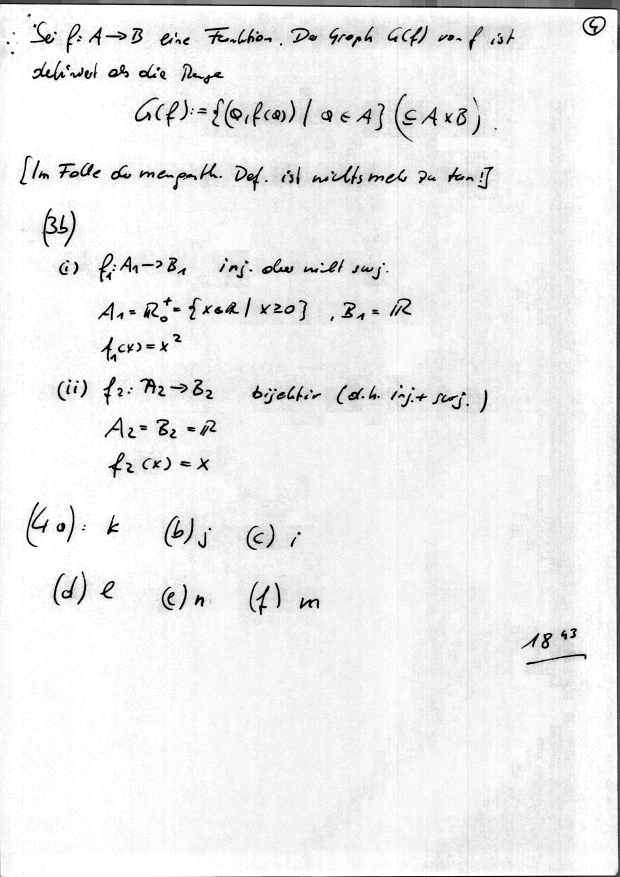 ④
∴ Sei f: A → B eine Funktion. Der Graph G(f) von f ist
definiert als die Menge
G(f) := {(a, f(a)) | a ∈ A} (⊆ A × B).
[Im Falle der mengenth. Def. ist nichts mehr zu tun!]
(3b)
(i) f₁: A₁ → B₁ inj. aber nicht surj.
A₁ = ℝ₀⁺ = {x ∈ ℝ | x ≥ 0}, B₁ = ℝ
f₁(x) = x²
(ii) f₂: A₂ → B₂ bijektiv (d.h. inj. + surj.)
A₂ = B₂ = ℝ
f₂(x) = x
(4a): k (b) j (c) i
(d) l (e) n (f) m
18 43